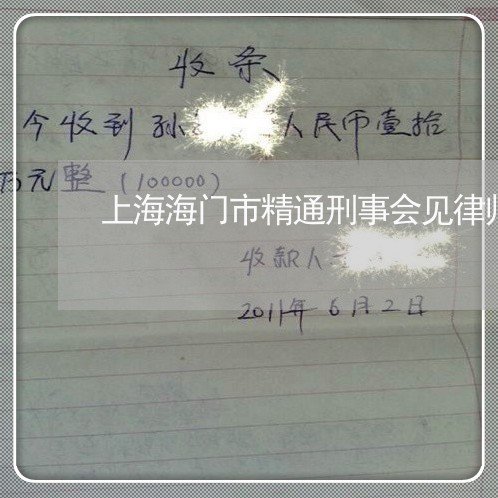 收条
今收到孙 人民币壹拾
万元整(100000)
上海海门市精通刑事会见律师
收款人
2011年6月2日